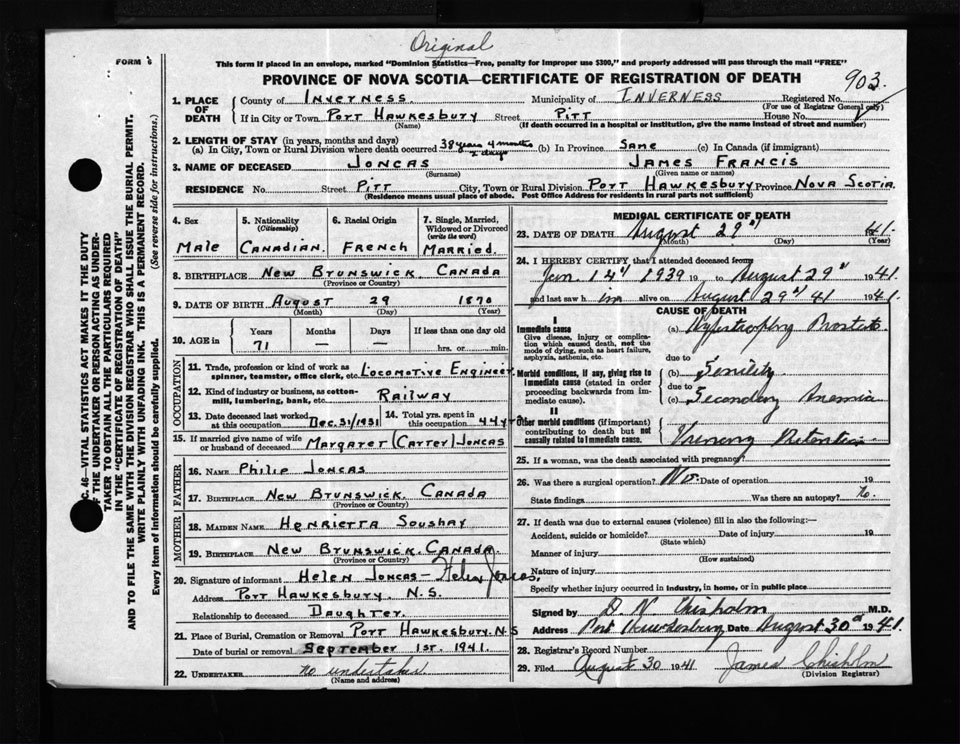 Original
FORM 6
This form if placed in an envelope, marked "Dominion Statistics—Free, penalty for improper use $300," and properly addressed will pass through the mail "FREE"
PROVINCE OF NOVA SCOTIA—CERTIFICATE OF REGISTRATION OF DEATH
903.
C. 46—VITAL STATISTICS ACT MAKES IT THE DUTY
OF THE UNDERTAKER OR PERSON ACTING AS UNDER-
TAKER TO OBTAIN ALL THE PARTICULARS REQUIRED
IN THE "CERTIFICATE OF REGISTRATION OF DEATH"
AND TO FILE THE SAME WITH THE DIVISION REGISTRAR WHO SHALL ISSUE THE BURIAL PERMIT.
WRITE PLAINLY WITH UNFADING INK. THIS IS A PERMANENT RECORD.
Every item of Information should be carefully supplied. (See reverse side for instructions.)
1. PLACE OF DEATH County of Inverness Municipality of INVERNESS Registered No.
(For use of Registrar General only)
If in City or Town Port Hawkesbury Street Pitt House No.
(Name) (If death occurred in a hospital or institution, give the name instead of street and number)
2. LENGTH OF STAY (in years, months and days)
(a) In City, Town or Rural Division where death occurred 38 years 4 months 2 days (b) In Province Same (c) In Canada (if immigrant)
3. NAME OF DECEASED Joncas James Francis
(Surname) (Given name or names)
RESIDENCE No. Street Pitt City, Town or Rural Division Port Hawkesbury Province Nova Scotia
(Residence means usual place of abode. Post Office Address for residents in rural parts not sufficient)
4. Sex
Male
5. Nationality (Citizenship)
Canadian.
6. Racial Origin
French
7. Single, Married, Widowed or Divorced (write the word)
Married.
8. BIRTHPLACE New Brunswick, Canada
(Province or Country)
9. DATE OF BIRTH August 29 1870
(Month) (Day) (Year)
10. AGE in Years Months Days If less than one day old
71 — — hrs. or min.
OCCUPATION
11. Trade, profession or kind of work as spinner, teamster, office clerk, etc. Locomotive Engineer
12. Kind of industry or business, as cotton-mill, lumbering, bank, etc. Railway
13. Date deceased last worked at this occupation Dec. 31/1931 14. Total yrs. spent in this occupation 44 yrs
15. If married give name of wife or husband of deceased Margaret (Carter) Joncas
FATHER
16. NAME Philip Joncas
17. BIRTHPLACE New Brunswick, Canada
(Province or Country)
MOTHER
18. MAIDEN NAME Henrietta Soushay
19. BIRTHPLACE New Brunswick, Canada.
(Province or Country)
20. Signature of informant Helen Joncas — Helen Joncas.
Address Port Hawkesbury. N.S.
Relationship to deceased Daughter.
21. Place of Burial, Cremation or Removal Port Hawkesbury. N.S
Date of burial or removal September 1st. 1941.
22. UNDERTAKER no undertaker
(Name and address)
MEDICAL CERTIFICATE OF DEATH
23. DATE OF DEATH August 29th 41.
(Month) (Day) (Year)
24. I HEREBY CERTIFY that I attended deceased from
Jan 14th 1939 19 to August 29th 1941.
and last saw him alive on August 29th 41 1941.
CAUSE OF DEATH
I
Immediate cause
Give disease, injury or complication which caused death, not the mode of dying, such as heart failure, asphyxia, asthenia, etc.
(a) Hypertrophy Prostate
due to
Morbid conditions, if any, giving rise to immediate cause (stated in order proceeding backwards from immediate cause).
(b) Senility
due to
(c) Secondary Anemia
II
Other morbid conditions (if important) contributing to death but not causally related to immediate cause.
Retention
25. If a woman, was the death associated with pregnancy?
26. Was there a surgical operation? No. Date of operation 19
State findings Was there an autopsy? No.
27. If death was due to external causes (violence) fill in also the following:—
Accident, suicide or homicide? Date of injury 19
(State which)
Manner of injury
(How sustained)
Nature of injury
Specify whether injury occurred in industry, in home, or in public place
Signed by D N Chisholm M.D.
Address Port Hawkesbury Date August 30th 1941.
28. Registrar's Record Number
29. Filed August 30 1941 James Chisholm
(Division Registrar)